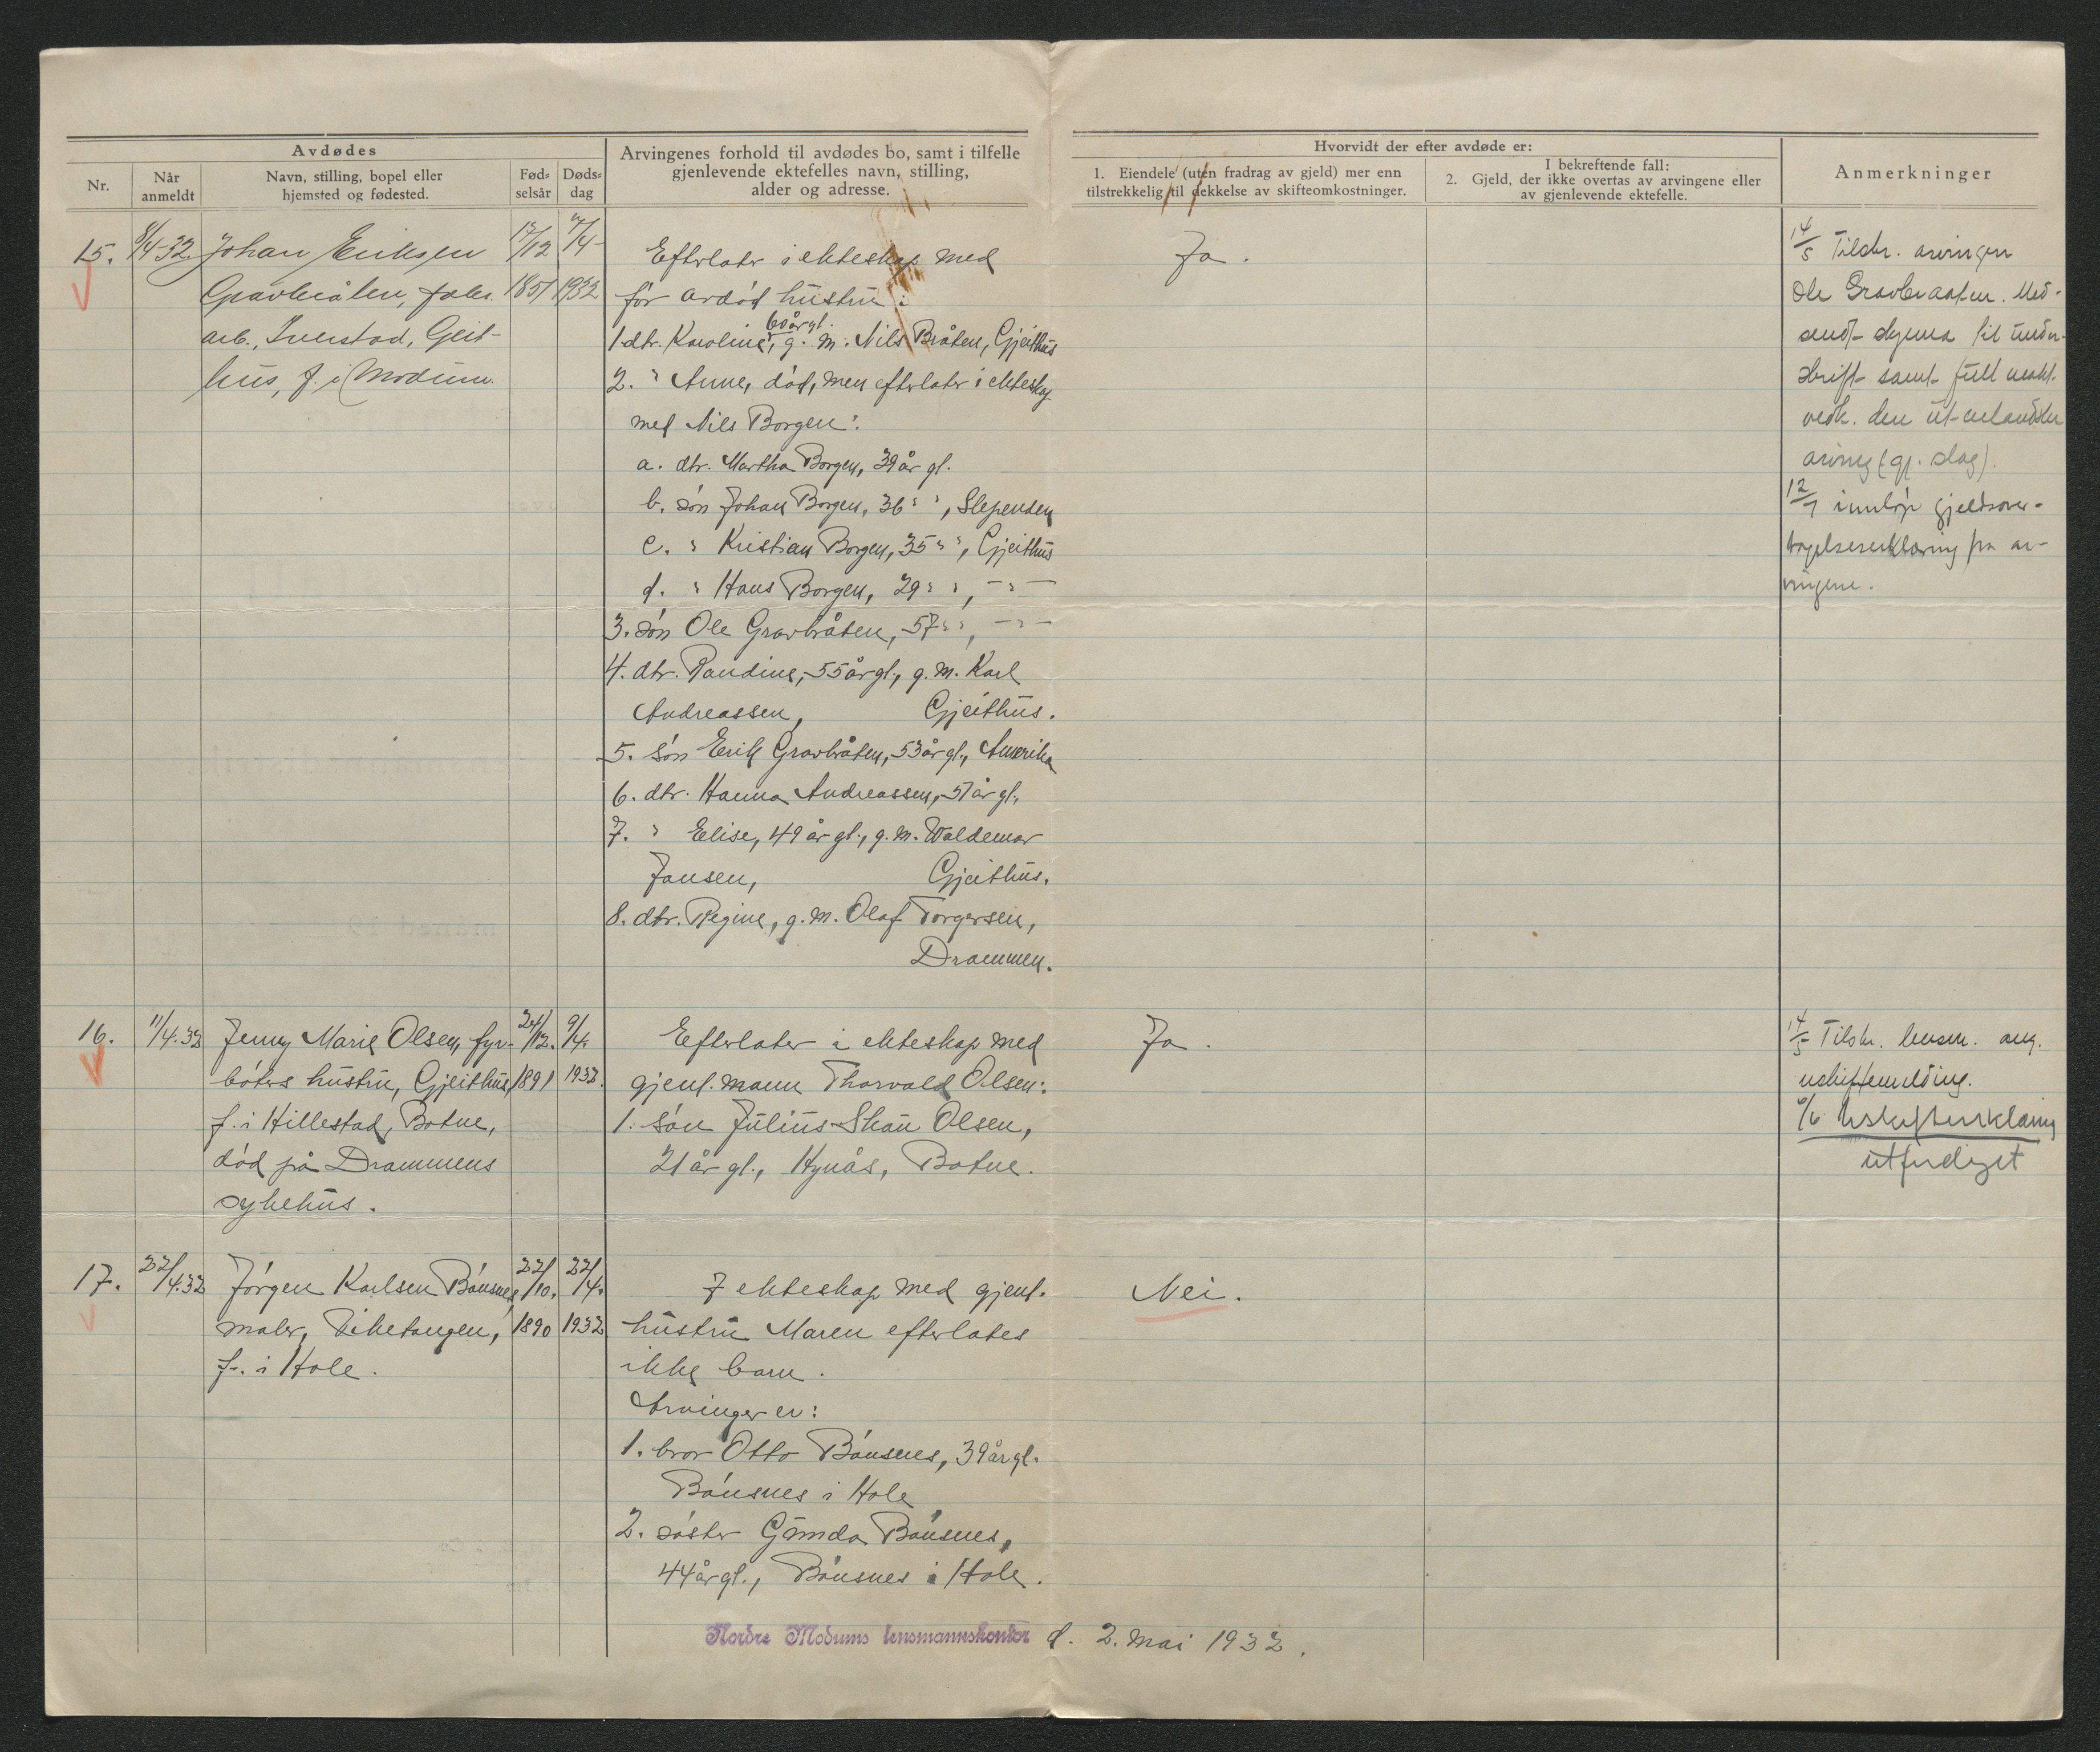 Avdødes
Nr.
Når anmeldt
Navn, stilling, bopel eller hjemsted og fødested.
Føds= selsår
Døds= dag
Arvingenes forhold til avdødes bo, samt i tilfelle
gjenlevende ektefelles navn, stilling,
alder og adresse.
Hvorvidt der efter avdøde er:
1. Eiendele (uten fradrag av gjeld) mer enn
tilstrekkelig til dekkelse av skifteomkostninger.
I bekreftende fall:
2. Gjeld, der ikke overtas av arvingene eller
av gjenlevende ektefelle.
Anmerkninger
15. 8/4-32. Johan Eriksen
Gravbråten, fabr.
arb., Iverstad, Geit-
hus, f. i Modum.
12/12
1851
7/4-
1932
Efterlater i ekteskap med
før avdød hustru:
60 år gl.
1 dtr. Karoline, g. m. Nils Bråten, Gjeithus
2. " Anne, død, men efterlater i ekteskap
med Nils Borgen:
a. dtr. Martha Borgen, 39 år gl.
b. søn Johan Borgen, 36 " ", Slependen
c. " Kristian Borgen, 35 " ", Gjeithus
d. " Hans Borgen, 29 " ", - " -
3. søn Ole Gravbråten, 57 " ", - " -
4. dtr. Randine, 55 år gl., g. m. Karl
Andreassen, Gjeithus.
5. søn Erik Gravbråten, 53 år gl., Amerika
6. dtr. Hanna Andreassen, 51 år gl.,
7. " Elise, 49 år gl., g. m. Waldemar
Jansen, Gjeithus.
8. dtr. Regine, g. m. Olaf Torgersen,
Drammen.
Ja.
14/5 Tilskr. arvingen
Ole Gravbraaten. Med-
sendt skjema til under-
skrift samt fullmakt
vedk. den utenlandske
arving (gj. slag).
12/7 innløp gjeldsover-
tagelseserklæring fra ar-
vingene.
16. 11/4.32 Jenny Marie Olsen, fyr-
bøters hustru, Gjeithus,
f. i Hillestad, Botne,
død på Drammens
sykehus.
24/12.
1891
9/4.
1932.
Efterlater i ekteskap med
gjenl. mann Thorvald Olsen:
1. søn Julius Skau Olsen,
21 år gl., Hynås, Botne.
Ja.
14/5 Tilskr. lensm. ang.
uskiftemelding.
9/6 Uskifteerklæring
utferdiget
17. 22/4.32 Jørgen Karlsen Bønsnes,
maler, Viketangen,
f. i Hole.
22/10.
1890
22/4.
1932
I ekteskap med gjenl.
hustru Maren efterlates
ikke barn.
Arvinger er:
1. bror Otto Bønsnes, 39 år gl.
Bønsnes i Hole
2. søster Gunda Bønsnes,
44 år gl., Bønsnes i Hole.
Nei.
Nordre Modums lensmannskontor d. 2. mai 1932.